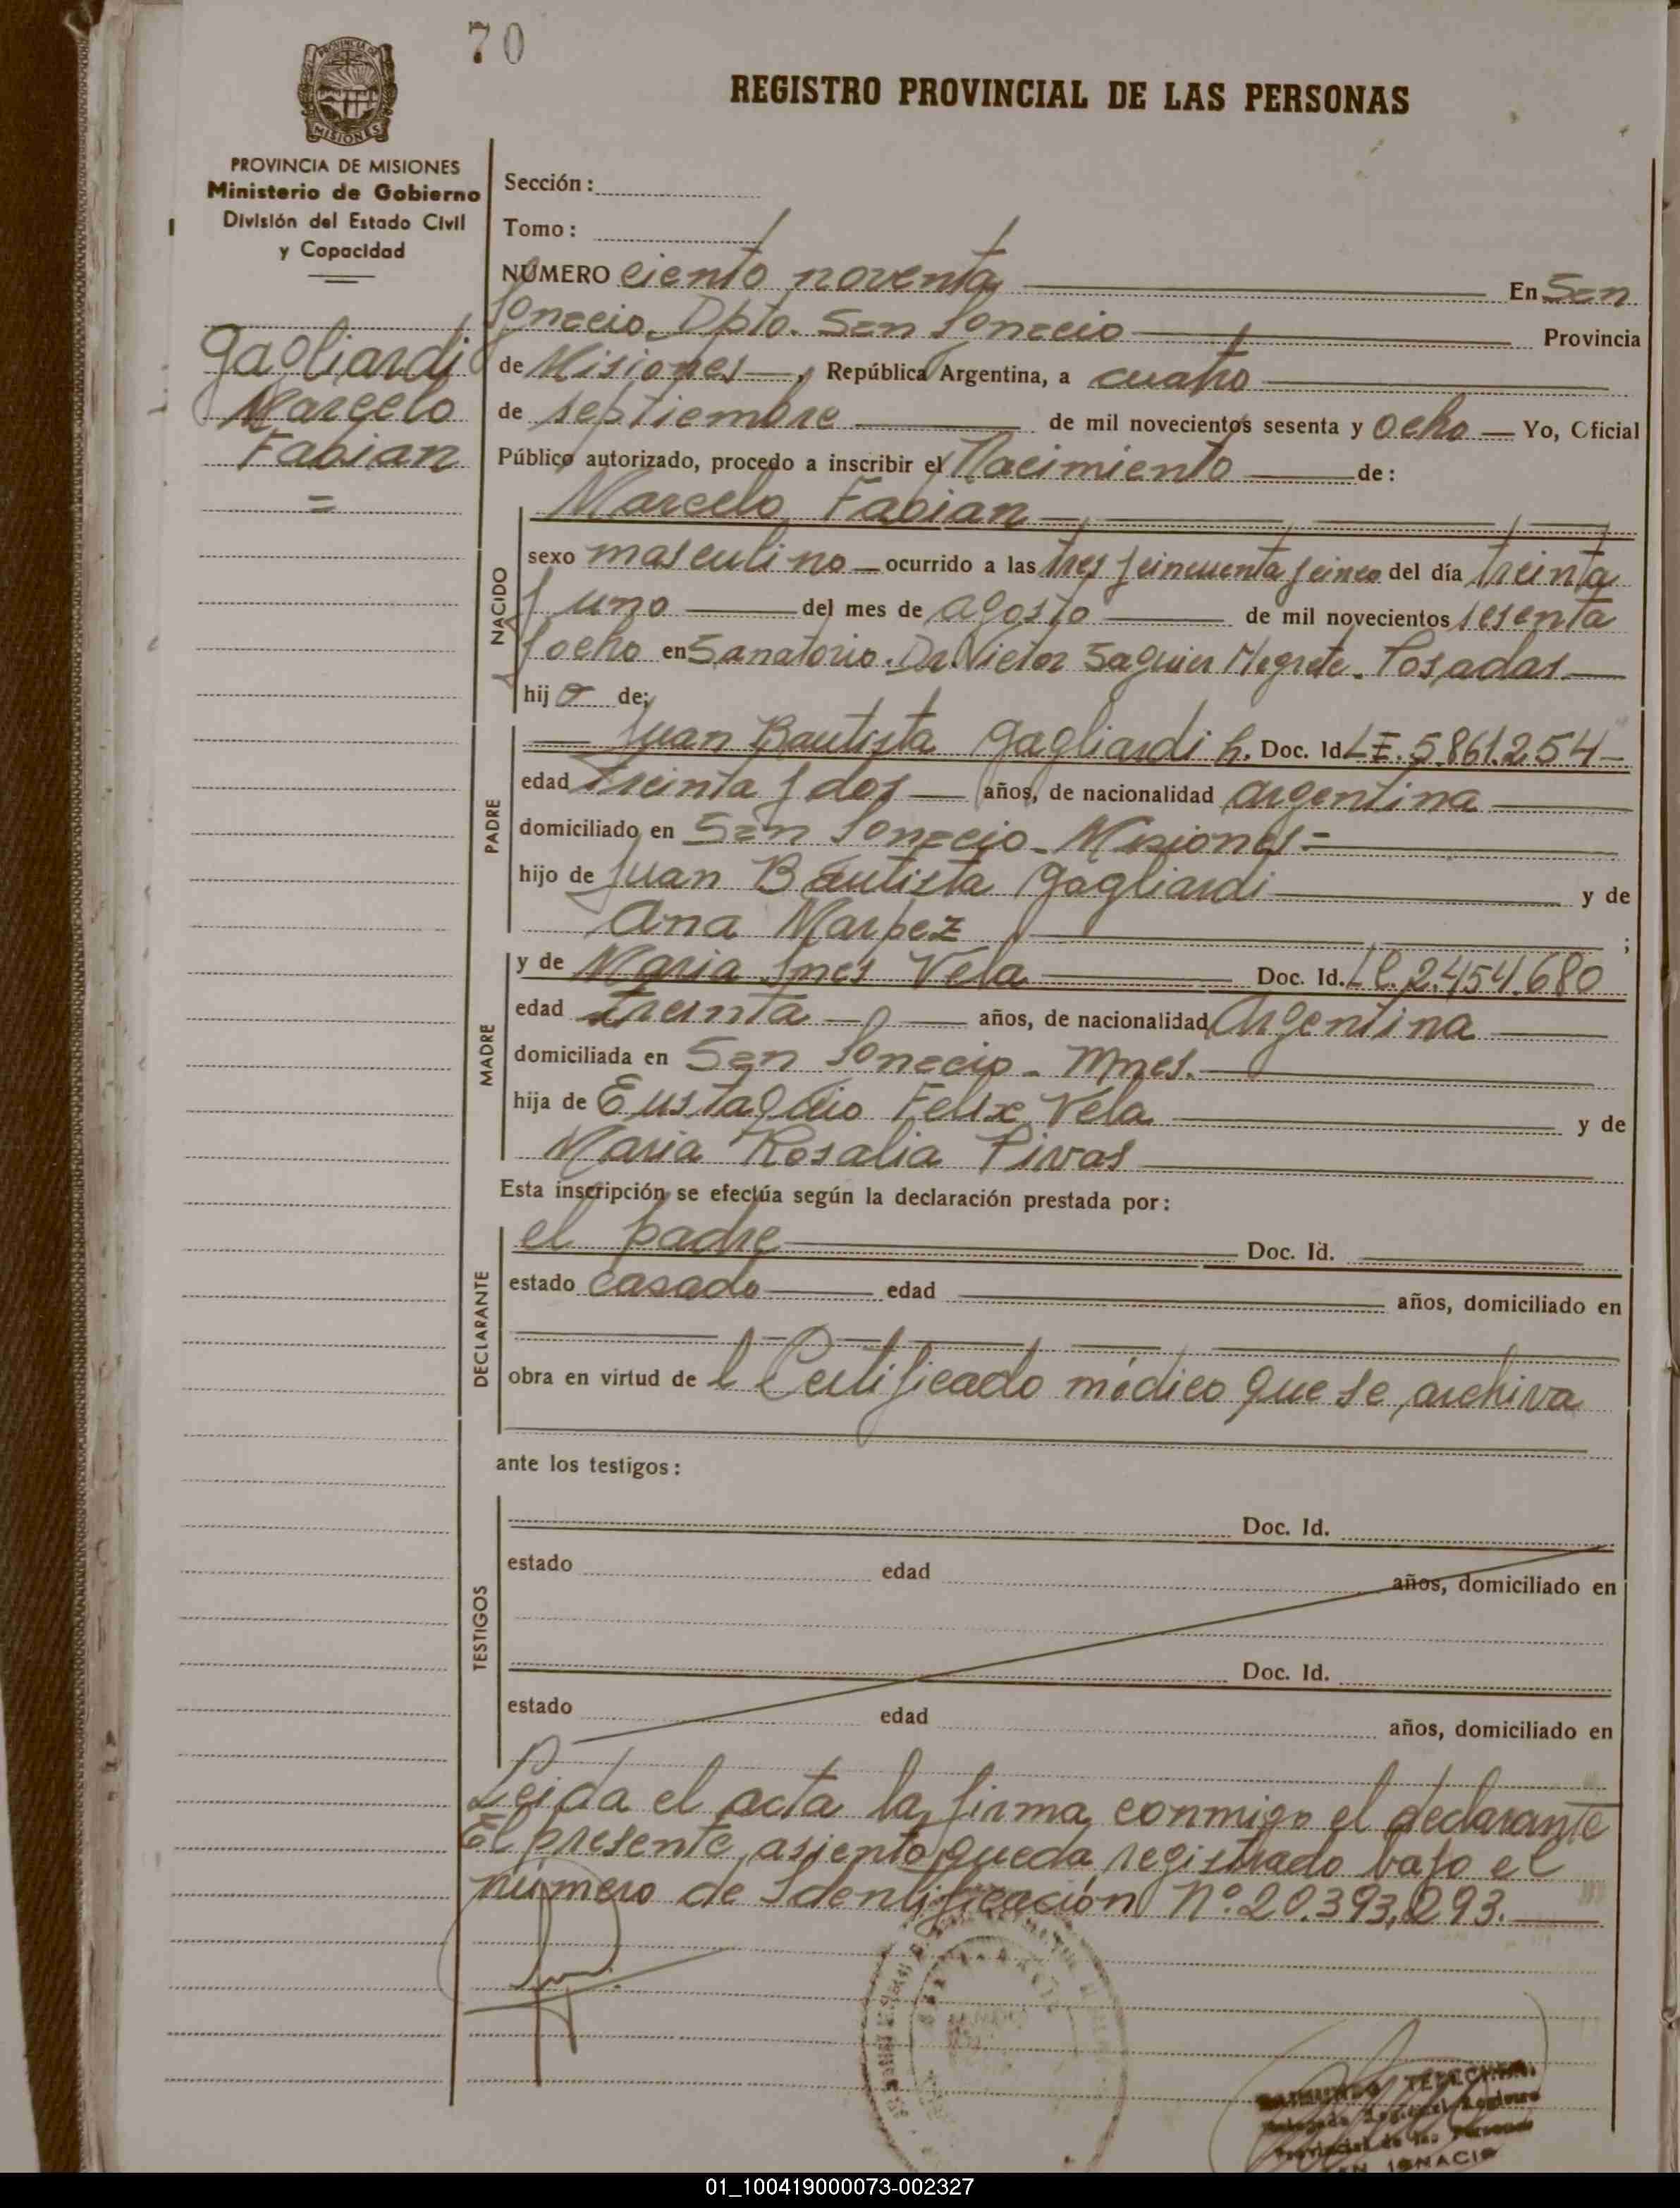 70
REGISTRO PROVINCIAL DE LAS PERSONAS
PROVINCIA DE MISIONES
Ministerio de Gobierno
División del Estado Civil
y Capacidad
Gagliardi
Marcelo
Fabian
=
Sección:
Tomo:
NÚMERO ciento noventa En San
Ignacio. Dpto. San Ignacio Provincia
de Misiones, República Argentina, a cuatro
de septiembre de mil novecientos sesenta y ocho Yo, Oficial
Público autorizado, procedo a inscribir el Nacimiento de:
Marcelo Fabian
NACIDO
sexo masculino ocurrido a las tres y cincuenta y cinco del día treinta
y uno del mes de agosto de mil novecientos sesenta
y ocho en Sanatorio. Dr. Victor Saguier Negrete. Posadas
hijo de:
PADRE
Juan Bautista Gagliardi h. Doc. Id. L.E. 5.861.254
edad treinta y dos años, de nacionalidad argentina
domiciliado en San Ignacio. Misiones=
hijo de Juan Bautista Gagliardi y de
Ana Marpez ;
MADRE
y de Maria Ines Vela Doc. Id. L.C. 2.454.680
edad treinta años, de nacionalidad Argentina
domiciliada en San Ignacio - Mnes.
hija de Eustaquio Felix Vela y de
Maria Rosalia Pivas
Esta inscripción se efectúa según la declaración prestada por:
DECLARANTE
el padre Doc. Id.
estado casado edad años, domiciliado en
obra en virtud de l Certificado médico que se archiva
ante los testigos:
TESTIGOS
Doc. Id.
estado edad años, domiciliado en
Doc. Id.
estado edad años, domiciliado en
Leida el acta la firma conmigo el declarante
El presente asiento queda registrado bajo el
número de Identificación Nº 20.393.293.
Provincial de las Personas
SAN IGNACIO
01_100419000073-002327